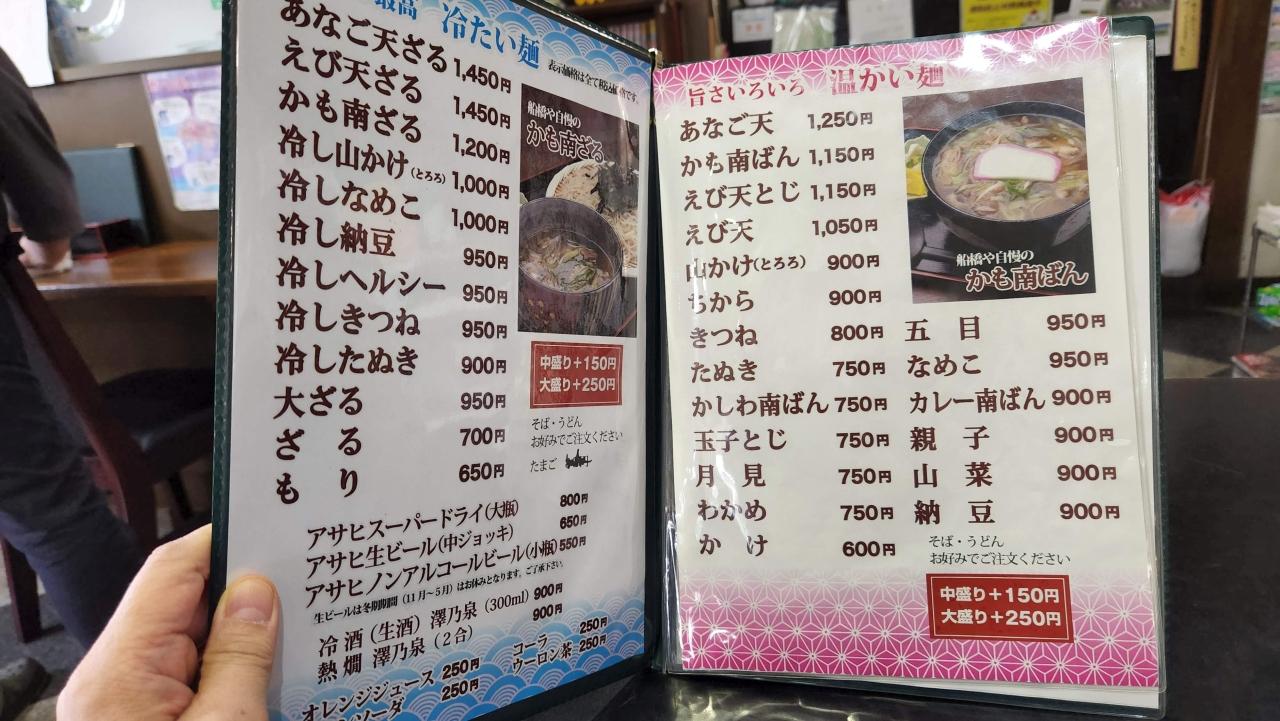 最高 冷たい麺
表示価格は全て税込価格です。
あなご天ざる 1,450円
えび天ざる 1,450円
かも南ざる 1,200円
冷し山かけ(とろろ) 1,000円
冷しなめこ 1,000円
冷し納豆 950円
冷しヘルシー 950円
冷しきつね 950円
冷したぬき 900円
大ざる 950円
ざる 700円
もり 650円
船橋や自慢の
かも南ざる
中盛り+150円
大盛り+250円
そば・うどん
お好みでご注文ください
たまご
アサヒスーパードライ(大瓶) 800円
アサヒ生ビール(中ジョッキ) 650円
アサヒノンアルコールビール(小瓶) 550円
生ビールは冬期期間(11月~5月)はお休みとなります。ご了承下さい。
冷酒(生酒)澤乃泉(300ml) 900円
熱燗 澤乃泉(2合) 900円
オレンジジュース 250円
ソーダ 250円
コーラ 250円
ウーロン茶 250円
旨さいろいろ 温かい麺
あなご天 1,250円
かも南ばん 1,150円
えび天とじ 1,150円
えび天 1,050円
山かけ(とろろ) 900円
ちから 900円
きつね 800円
たぬき 750円
かしわ南ばん 750円
玉子とじ 750円
月見 750円
わかめ 750円
かけ 600円
船橋や自慢の
かも南ばん
五目 950円
なめこ 950円
カレー南ばん 900円
親子 900円
山菜 900円
納豆 900円
そば・うどん
お好みでご注文ください
中盛り+150円
大盛り+250円